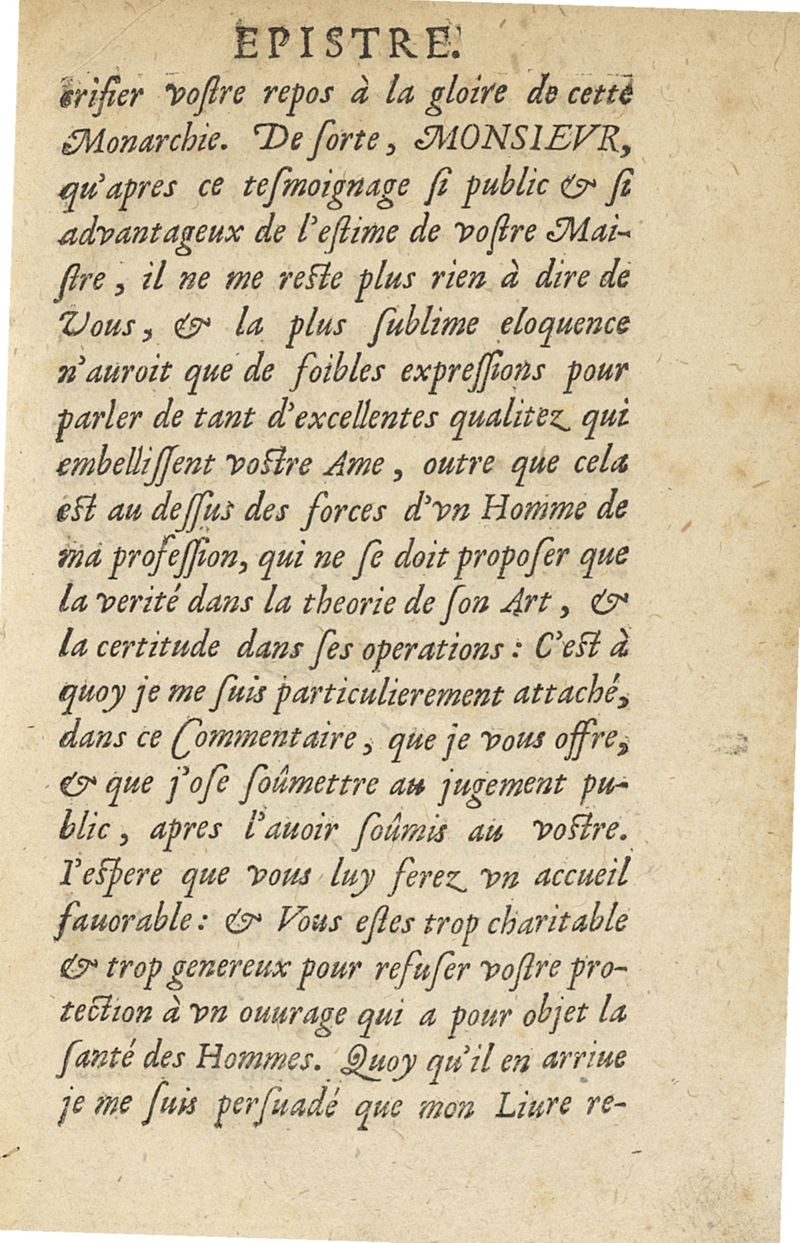 EPISTRE.
crifier voſtre repos à la gloire de cette
Monarchie. De ſorte, MONSIEVR,
qu'apres ce teſmoignage ſi public & ſi
advantageux de l'eſtime de voſtre Mai-
ſtre, il ne me reſte plus rien à dire de
Vous, & la plus ſublime eloquence
n'auroit que de foibles expreſſions pour
parler de tant d'excellentes qualitez qui
embelliſſent voſtre Ame, outre que cela
eſt au deſſus des forces d'vn Homme de
ma profeſſion, qui ne ſe doit propoſer que
la verité dans la theorie de ſon Art, &
la certitude dans ſes operations : C'eſt à
quoy je me ſuis particulierement attaché,
dans ce Commentaire, que je vous offre,
& que j'oſe ſoûmettre au jugement pu-
blic, apres l'auoir ſoûmis au voſtre.
I'eſpere que vous luy ferez vn accueil
fauorable : & Vous eſtes trop charitable
& trop genereux pour refuſer voſtre pro-
tection à vn ouurage qui a pour objet la
ſanté des Hommes. Quoy qu'il en arriue
je me ſuis perſuadé que mon Liure re-